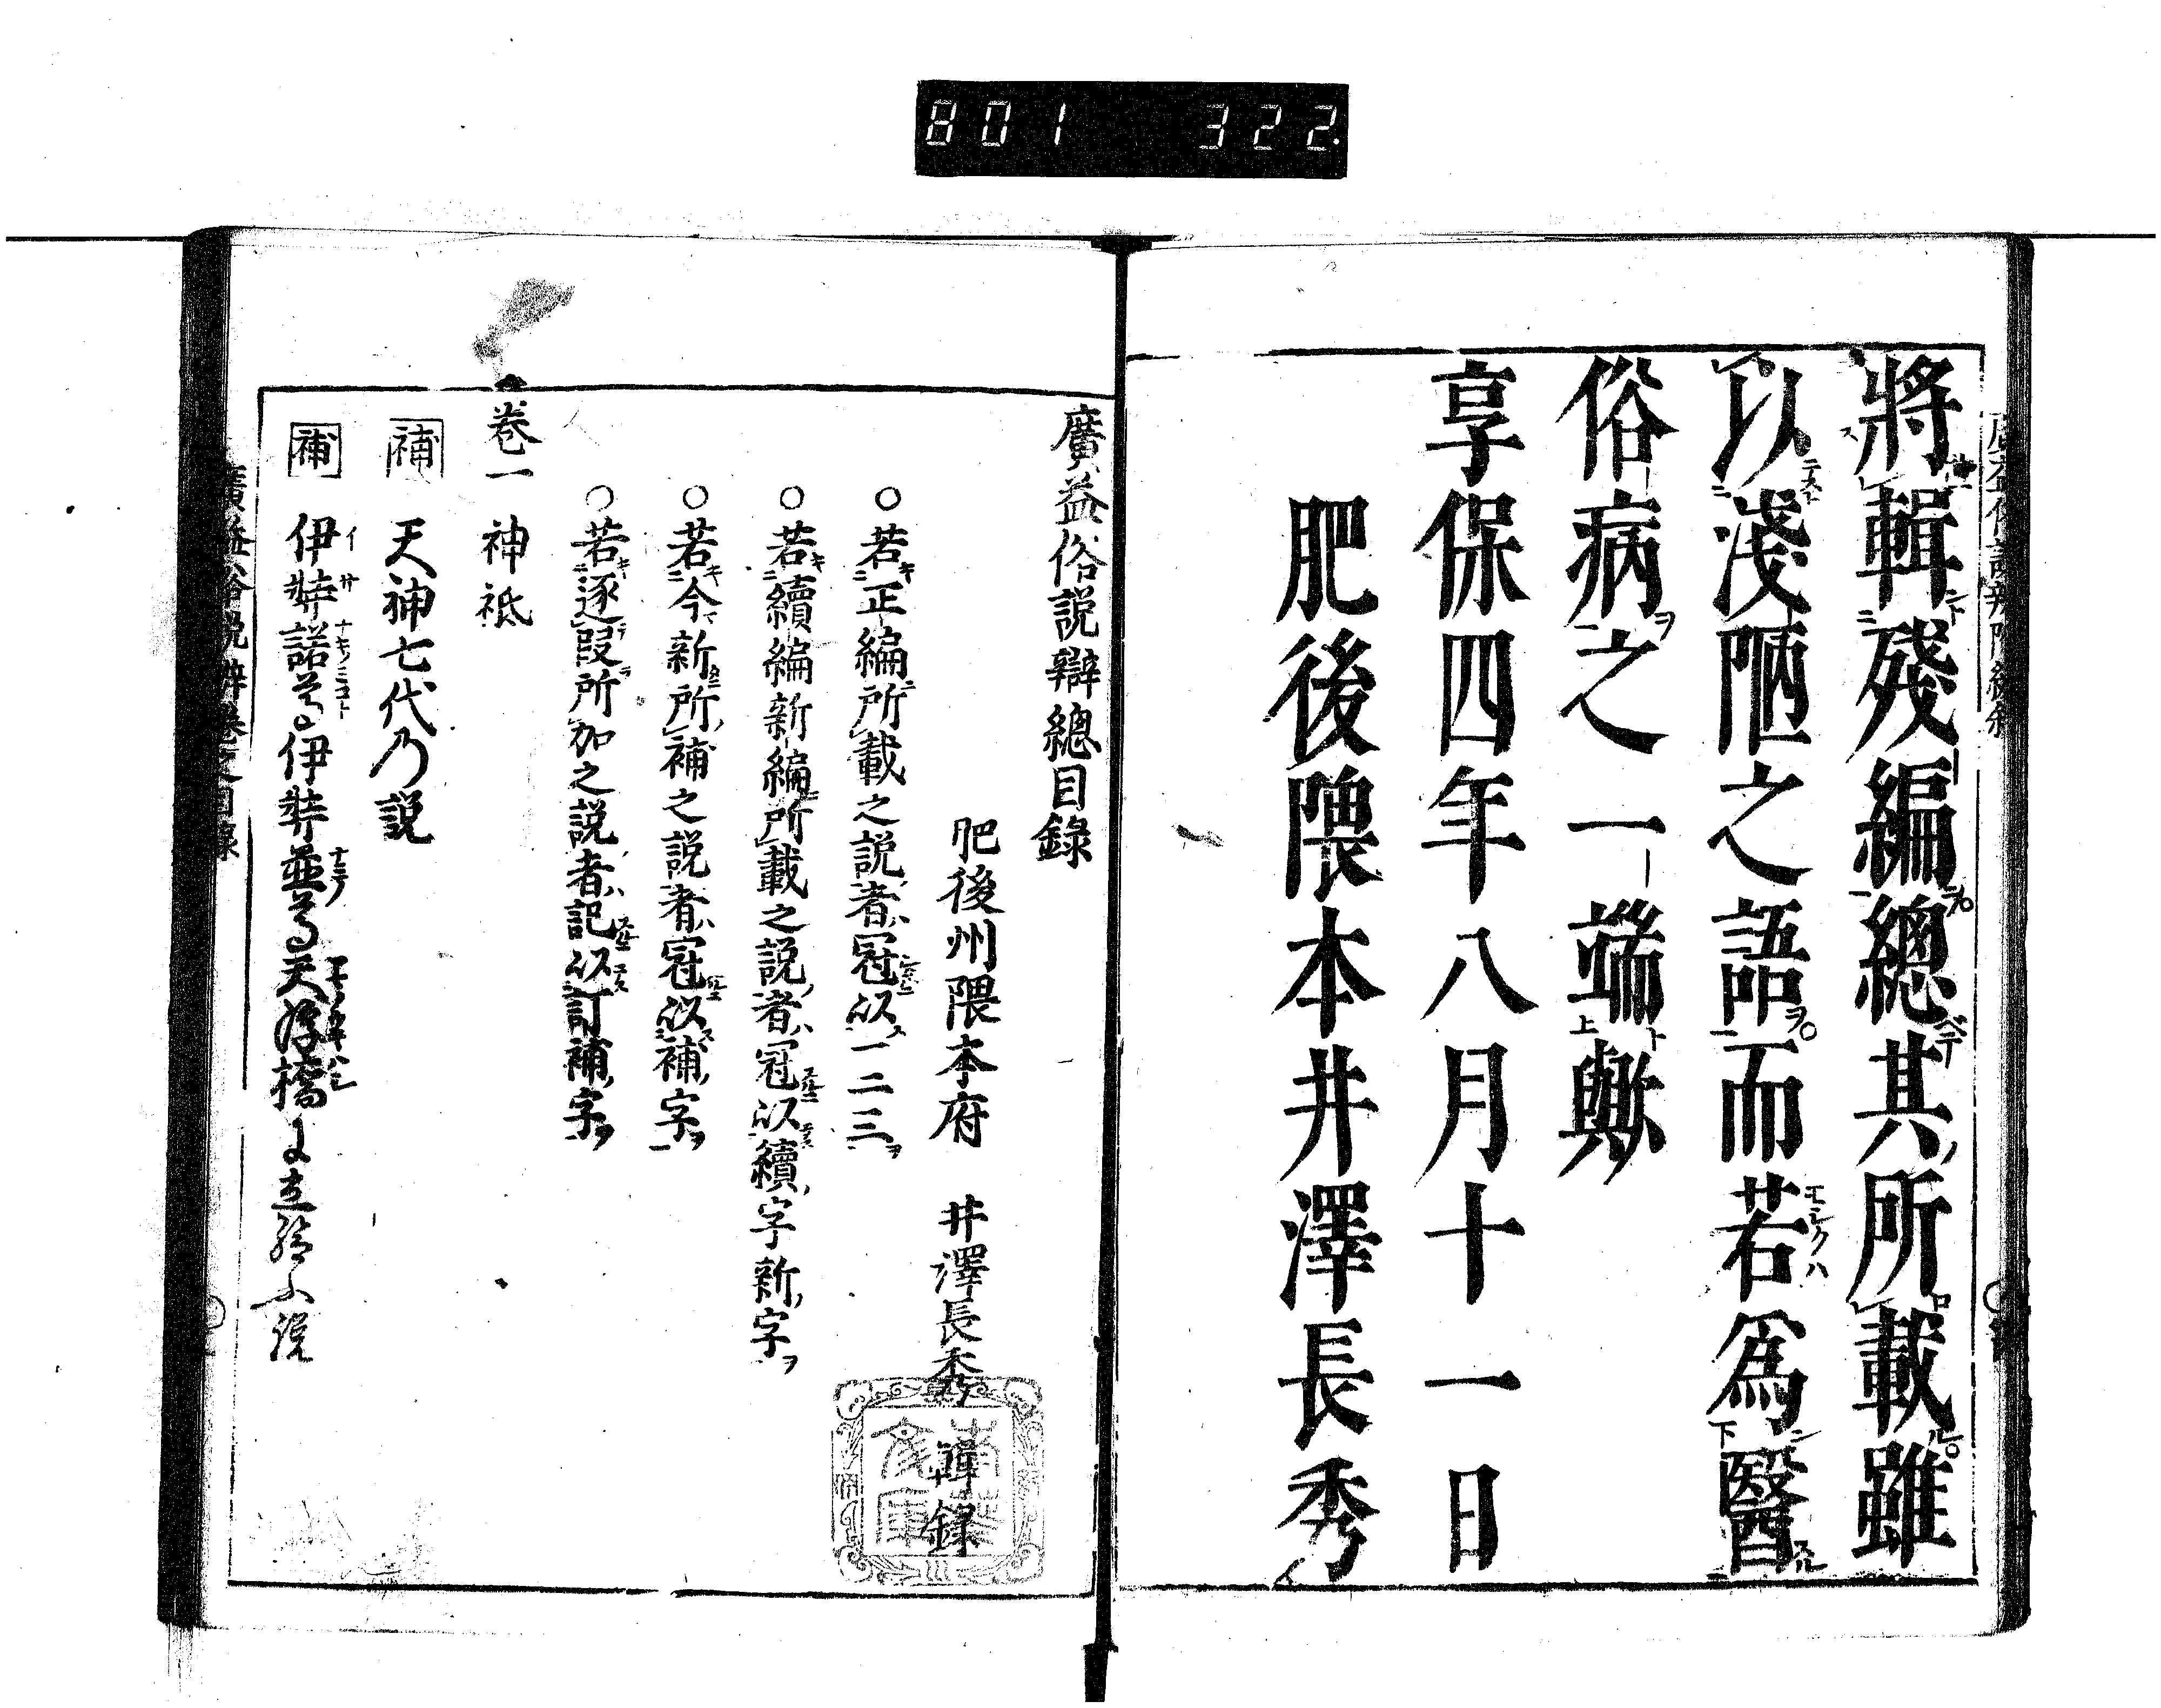 801 322
將輯殘編總其所載雖
以淺陋之語而若爲醫
俗病之一端歟
享保四年八月十一日
肥後隈本井澤長秀
廣益俗説辯總目錄
肥後州隈本府 井澤長秀 輯錄
○若正編所載之説者冠以一二三
○若續編新編所載之説者冠以續字新字
○若今新所補之説者冠以補字
○若逐段所加之説者記以訂補字
卷一 神祇
補 天神七代乃説
補 伊弉諾尊伊弉並尊天浮橋に立給ふ説
廣益俗説辯卷之目錄